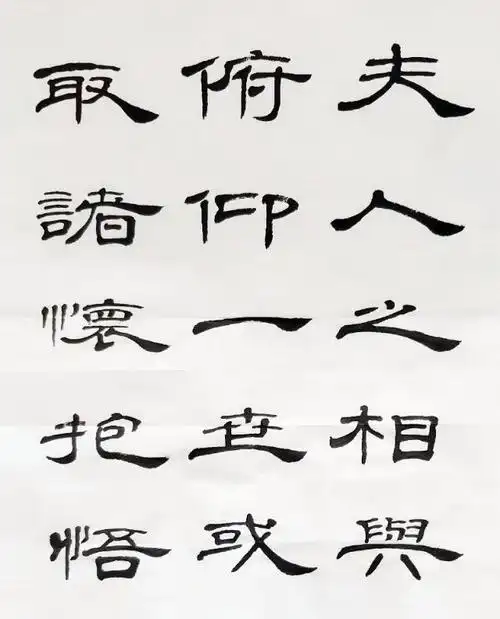 夫人之相與
俯仰一世或
取諸懷抱悟